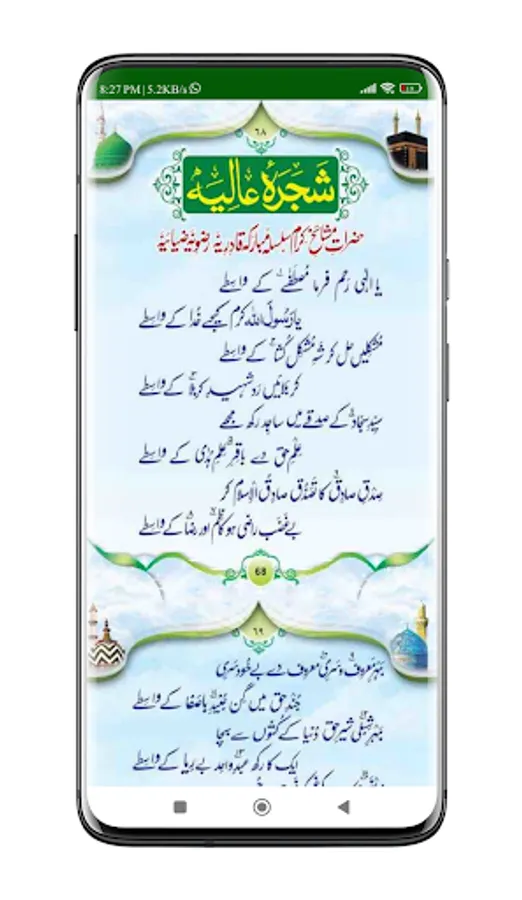 8:27 PM | 5.2KB/s
٦٨
شجرۂ عالیہ
حضراتِ مشائخِ کرام سلسلۂ مبارکہ قادریہ رضویہ ضیائیہ
یا الٰہی رحم فرما مُصطَفٰے کے واسطے
یا رَسُولَ اللہ کرم کیجیے خُدا کے واسطے
مُشکلیں حل کر شہِ مُشکل کُشا کے واسطے
کر بلائیں رَد شہیدِ کربلا کے واسطے
سیِّدِ سجّاد کے صدقے میں ساجد رکھ مجھے
عِلمِ حق دے باقِرِ عِلمِ ہُدیٰ کے واسطے
صِدقِ صادِق کا تَصَدُّق صادِقُ الاِسلام کر
بے غَضَب راضی ہو کاظِم اور رضا کے واسطے
68
٦٩
بہرِ معروف و سَری معروف دے بے خود سَری
جُندِ حق میں گِن جُنیدِ باصفا کے واسطے
بہرِ شبلی شیرِ حق دُنیا کے کُتّوں سے بچا
ایک کا رکھ عبدِ واحِد بے رِیا کے واسطے